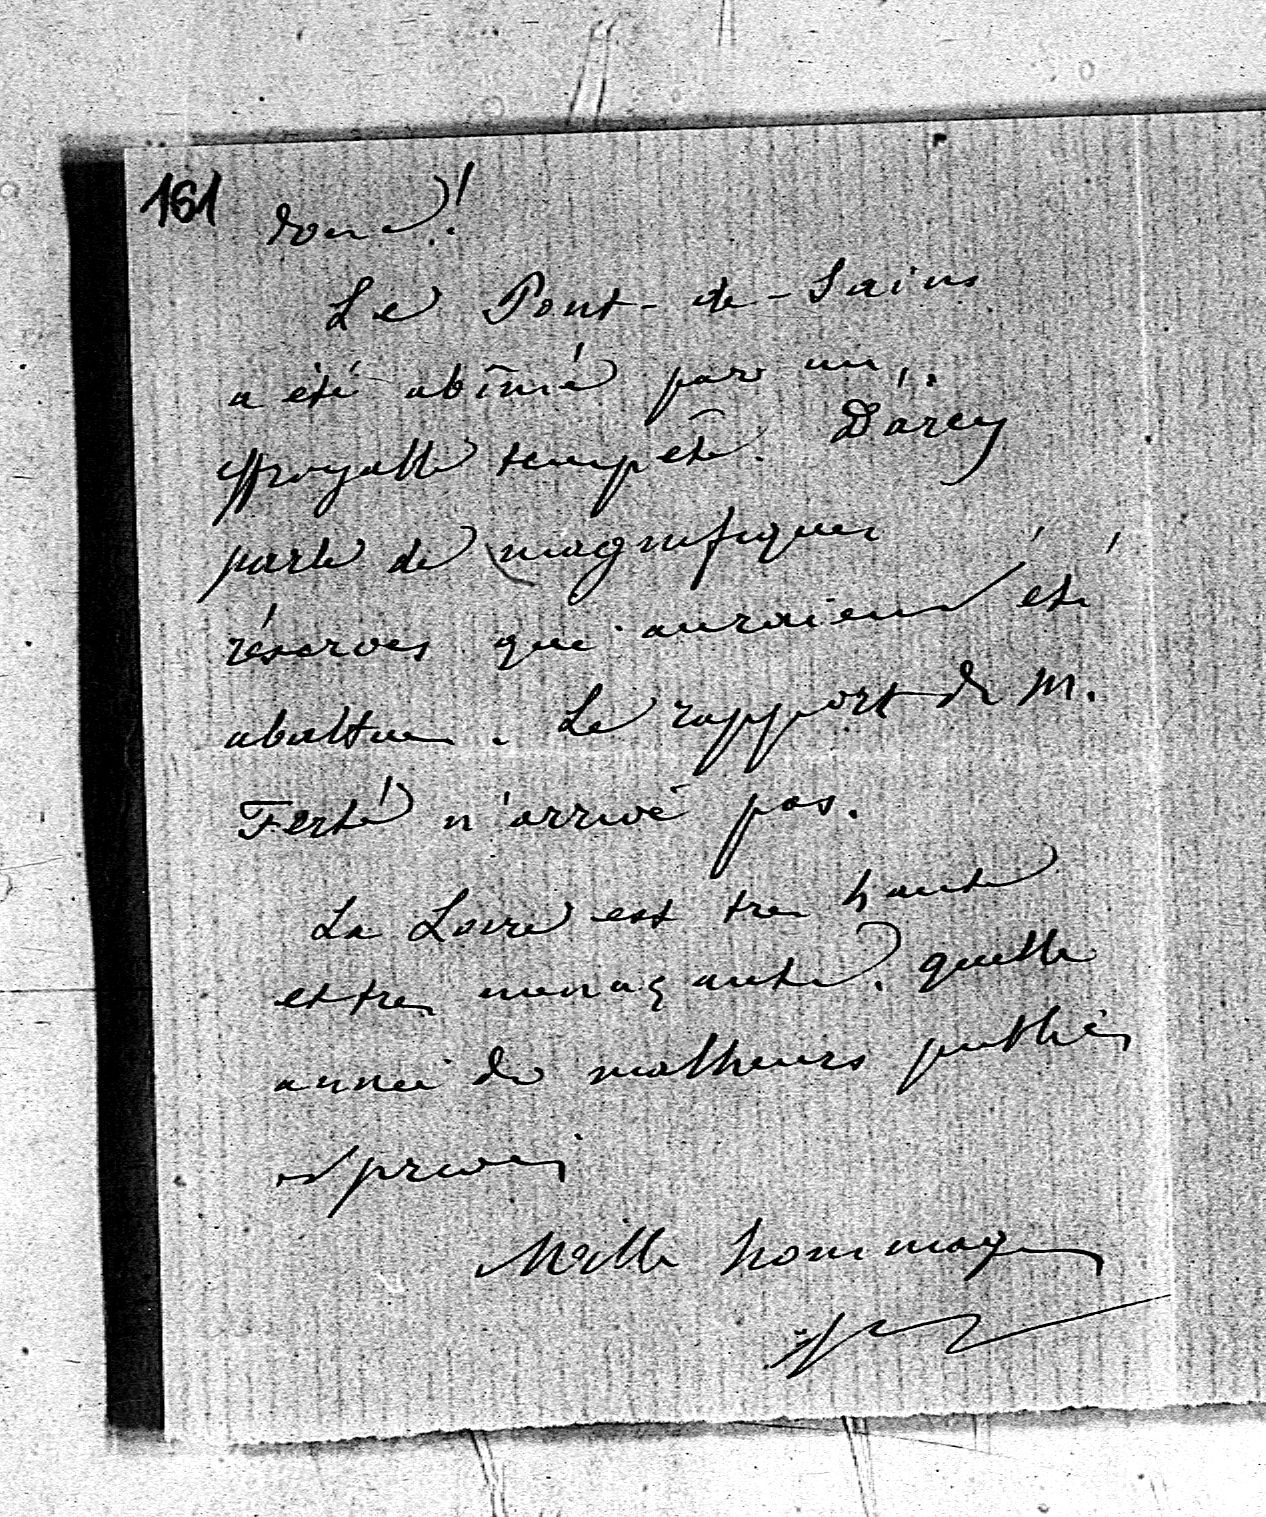 161
donc !
Le Pont-de-Sains
a été abîmé par un
effroyable tempête. Darcy
parle de magnifiques
réserves que auraient été
abattues. Le rapport de M.
Ferté n'arrive pas.
La Loire est très haute
et très menaçante. quelle
année de malheurs publics
et privés
Mille hommages